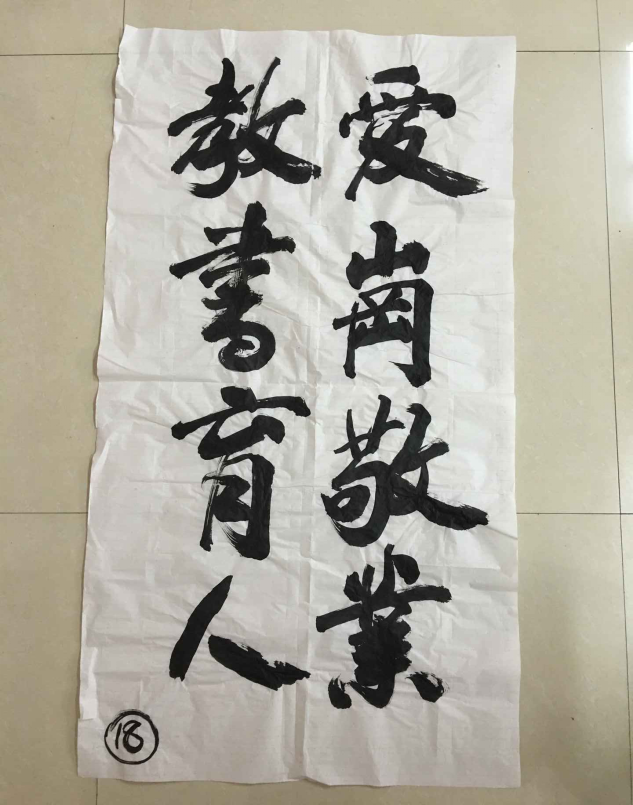 愛崗敬業
教書育人
18